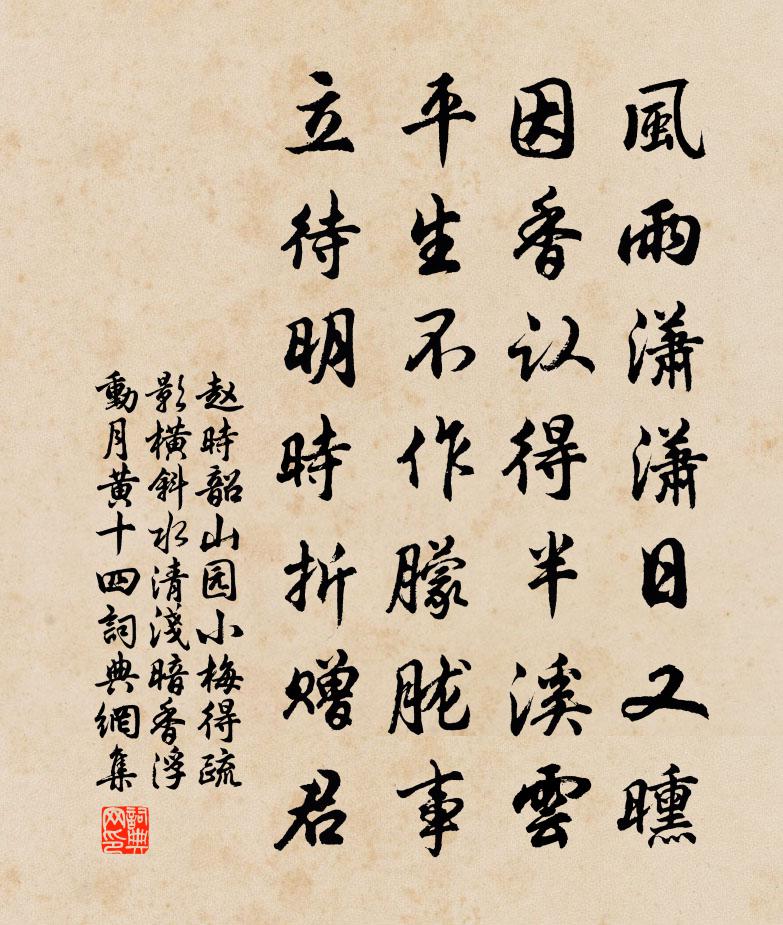 風雨瀟瀟日又曛
因香认得半溪雲
平生不作朦胧事
立待明時折赠君
赵時韶山园小梅得疏
影橫斜水清淺暗香浮
動月黄十四詞典網集
詞典网印